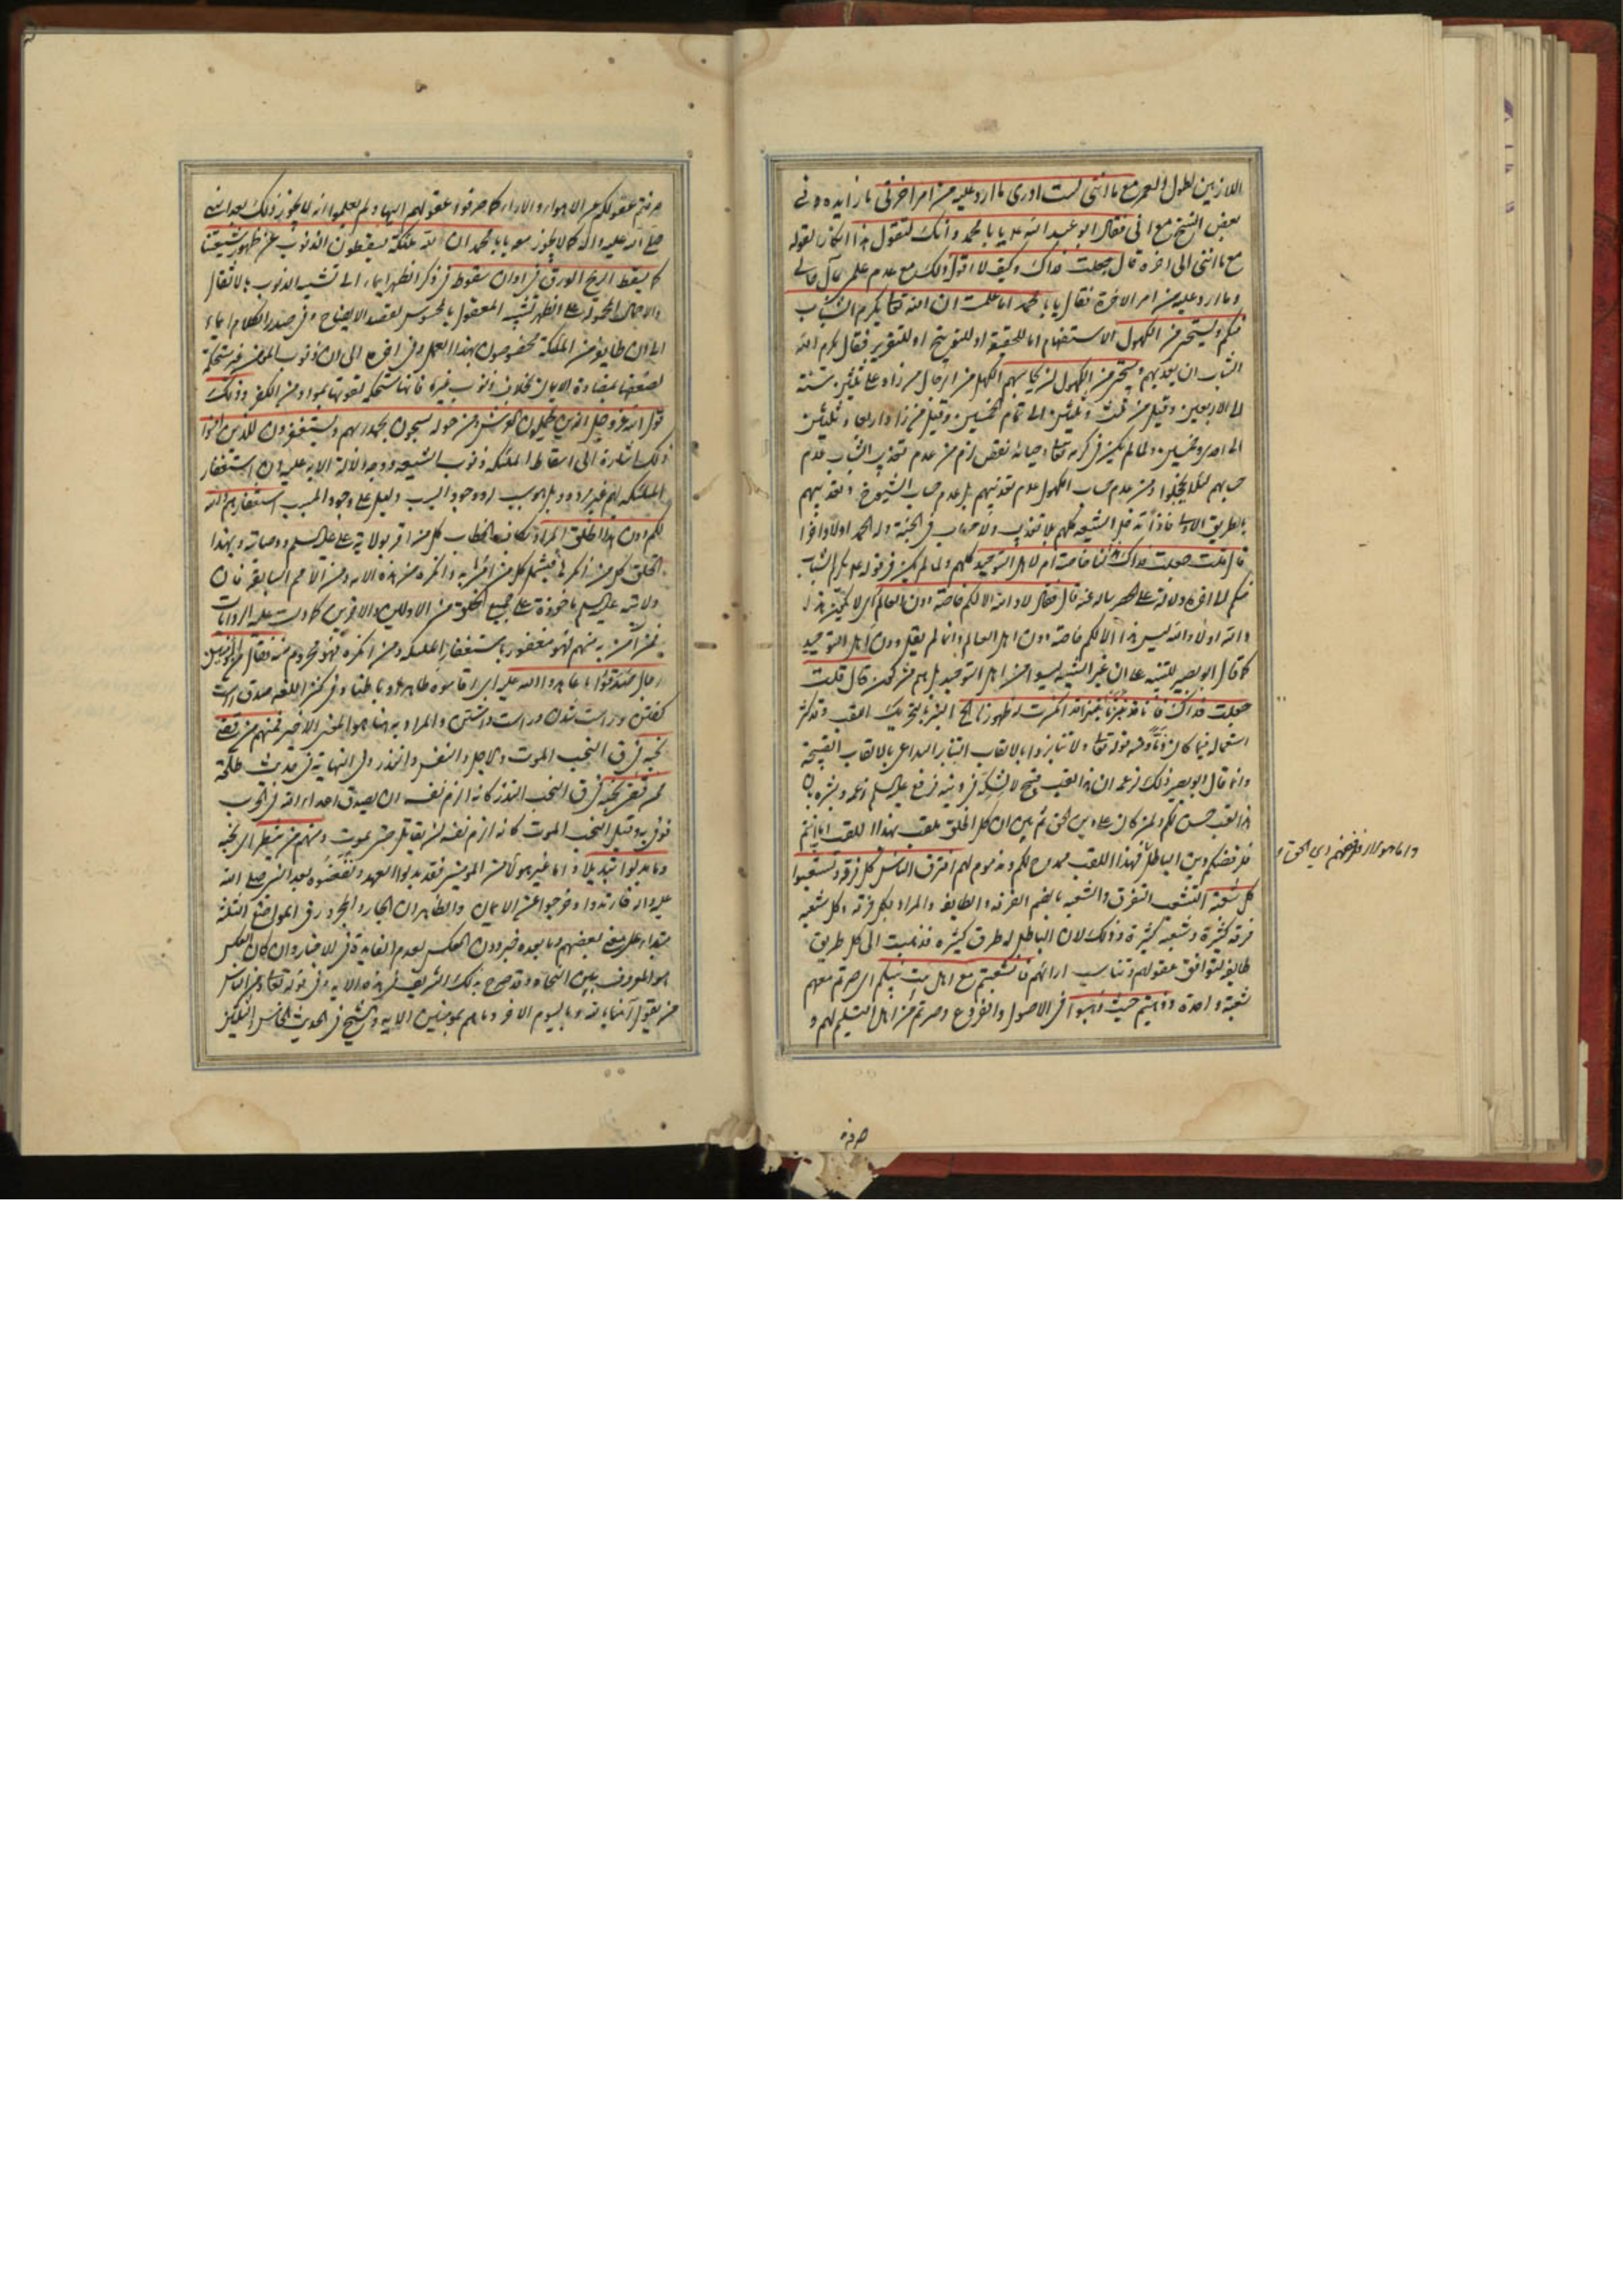 اللازمين لطول العمر مع ما اننى لست ادرى ما ارد عليه من امر اخرتى ما زايده وفي
بعض النسخ مع انى فقال ابو عبد الله عليه يا با محمد وانك لتقول هذا انكار لقوله
مع ما اننى الى اخره قال جعلت فداك وكيف لا اقول ذلك مع عدم علمى بمآل حالى
وما ارد عليه من امر الاخرة فقال يا با محمد اما علمت ان الله تعالى يكرم الشباب
منكم ويستحيى من الكهول الاستفهام اما للحقيقة او للتوبيخ او للتقرير فقال يكرم الله
الشباب ان يعذبهم ويستحيى من الكهول ان يحاسبهم الكهل من الرجال من زاد على ثلثين سنة
الى الاربعين وقيل من ثلث وثلثين الى تمام الخمسين وقيل من زاد اربعا وثلثين
الى احدى وخمسين ولما لم يكن فى كرمه تعالى وحيائه نقص لزم من عدم تعذيب الشباب عدم
حسابهم لئلا يخجلوا ومن عدم حساب الكهول عدم تعذيبهم بل عدم حساب الشيوخ وتعذيبهم
بالطريق الاولى فاذا تدخل الشيعة كلهم بلا تعذيب ولا حساب فى الجنة وله الحمد اولا واخرا
قال قلت جعلت فداك هذا لنا خاصة ام لاهل التوحيد كلهم ولما لم يكن فى قوله عليه يكرم الشباب
منكم الى اخره دلالة على الحصر ساله عنه قال فقال لا والله الا لكم خاصة دون العالم اى لا يكون هذا
والله او لا والله ليس هذا الا لكم خاصة دون اهل العالم وانما لم يقل دون اهل التوحيد
كما قال ابو بصير للتنبيه على ان غير الشيعة ليسوا من اهل التوحيد بل هم مشركون قال قلت
جعلت فداك فانا قد نبزنا نبزا انكسرت له ظهورنا النبز بالتحريك اللقب وقد كثر
استعماله فيما كان ذما ومنه قوله تعالى ولا تنابزوا بالالقاب التنابز التداعى بالالقاب القبيحة
وانما قال ابو بصير ذلك لزعمه ان هذا اللقب قبيح لا لشكه فى دينه فرفع عليه السلم زعمه وبشره بان
هذا لقب حسن لكم ولمن كان على دين الحق ثم بين ان كل الخلق ملقب بهذا اللقب اما انتم
فلرفضكم دين الباطل فهذا اللقب ممدوح لكم ومذموم لهم افترق الناس كل فرقة وتشعبوا
كل شعبة التشعب التفرق والشعبة بالضم الفرقة والطايفة والمراد بكل فرقة وكل شعبة
فرقة كثيرة وشعبة كثيرة وذلك لان الباطل له طرق كثيرة فذهبت الى كل طريق
طايفة لتوافق عقولهم وتناسب ارائهم فانشعبتم مع اهل بيت نبيكم اى صرتم معهم
شعبة واحدة وذهبتم حيث ذهبوا فى الاصول والفروع وصرتم من اهل التسليم لهم و
واما هولاء فلرفضهم دين الحق
صرفتم
صرفتم عقولكم عن الاهواء والاراء كما صرفوا عقولهم اليها ولم يعلموا انه لا يجوز ذلك بعد النبى
صلى الله عليه واله كما لا يجوز معه يا با محمد ان لله ملئكة يسقطون الذنوب عن ظهور شيعتنا
كما يسقط الريح الورق فى اوان سقوطه فى ذكر الظهر ايماء الى تشبيه الذنوب بالاثقال
والاحمال المحمولة على الظهر تشبيه المعقول بالمحسوس لقصد الايضاح وفى صدر الكلام ايماء
الى ان طايفة من الملئكة مخصوصون بهذا العمل وفى اخره الى ان ذنوب المؤمن غير مستحكمة
لضعفها بمضادة الايمان بخلاف ذنوب غيره فانها مستحكمة لقوتها بمواد من الكفر وذلك
قول الله عز وجل الذين يحملون العرش ومن حوله يسبحون بحمد ربهم ويستغفرون للذين امنوا
ذلك اشارة الى اسقاط الملئكة ذنوب الشيعة ووجه دلالة الاية عليه ان استغفار
الملئكة لهم غير مردود بل هو سبب له ووجود السبب دليل على وجود المسبب استغفارهم والله
لكم دون هذا الخلق المراد بكاف الخطاب كل من اقر بولاية على عليه السلم ووصايته وبهذا
الخلق كل من انكرها فيشمل كل من اقر به وانكره من هذه الامة ومن الامم السابقة فان
ولايته عليه السلم ماخوذة على جميع الخلق من الاولين والاخرين كما دلت عليه الروايات
فمن آمن به منهم فهو مغفور باستغفار الملئكة ومن انكره فهو محروم منه فقال من المؤمنين
رجال صدقوا ما عاهدوا الله عليه اى اقاموه ظاهرا وباطنا وفى كنز اللغة صدق راست
كفتن وراست شدن وراست داشتن والمراد به هنا هو المعنى الاخير فمنهم من قضى
نحبه فى ق النحب الموت والاجل والنفس والنذر وفى النهاية فى حديث طلحة
ممن قضى نحبه فى ق النحب النذر كانه الزم نفسه ان يصدق اعداء الله فى الحرب
فوفى به وقيل النحب الموت كانه الزم نفسه ان يقاتل حتى يموت ومنهم من ينتظر اى نحبه
وما بدلوا تبديلا واما غير هولاء من المؤمنين فقد بدلوا العهد ونقضوه بعد النبى صلى الله
عليه واله فارتدوا وخرجوا عن الايمان والظاهر ان الجار والمجرور فى المواضع الثلثة
مبتداء على معنى بعضهم وما بعده خبر دون العكس لعدم الفايدة فى الاخبار وان كان العكس
هو المعروف بين النحاة وقد صرح بذلك الشريف فى هذه الاية وفى قوله تعالى ومن الناس
من يقول آمنا بالله وباليوم الاخر وما هم بمؤمنين الاية والشيخ فى الحديث الخامس والثلثين